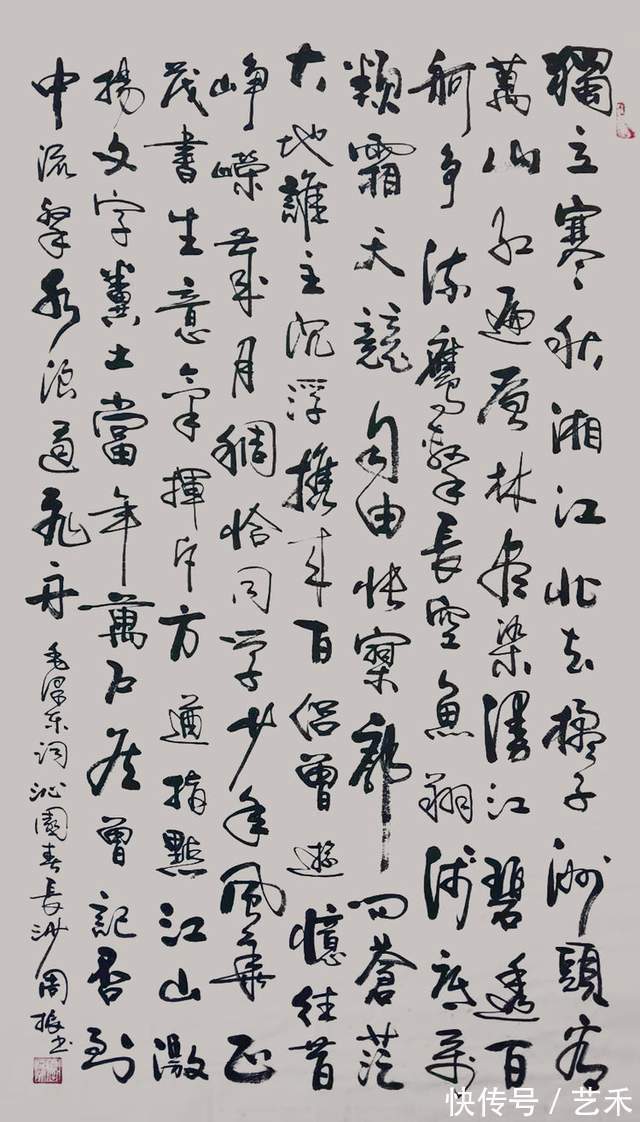 獨立寒秋湘江北去橘子洲頭看
萬山红遍層林盡染漫江碧透百
舸争流鷹擊長空魚翔淺底萬
類霜天競自由悵寥廓問蒼茫
大地誰主沉浮携来百侣曾遊憶往昔
崢嶸歲月稠恰同学少年風華正
茂書生意氣揮斥方遒指點江山激
揚文字糞土當年萬户侯曾記否到
中流擊水浪遏飛舟
毛澤东词沁園春長沙周振书
快传号 / 艺禾